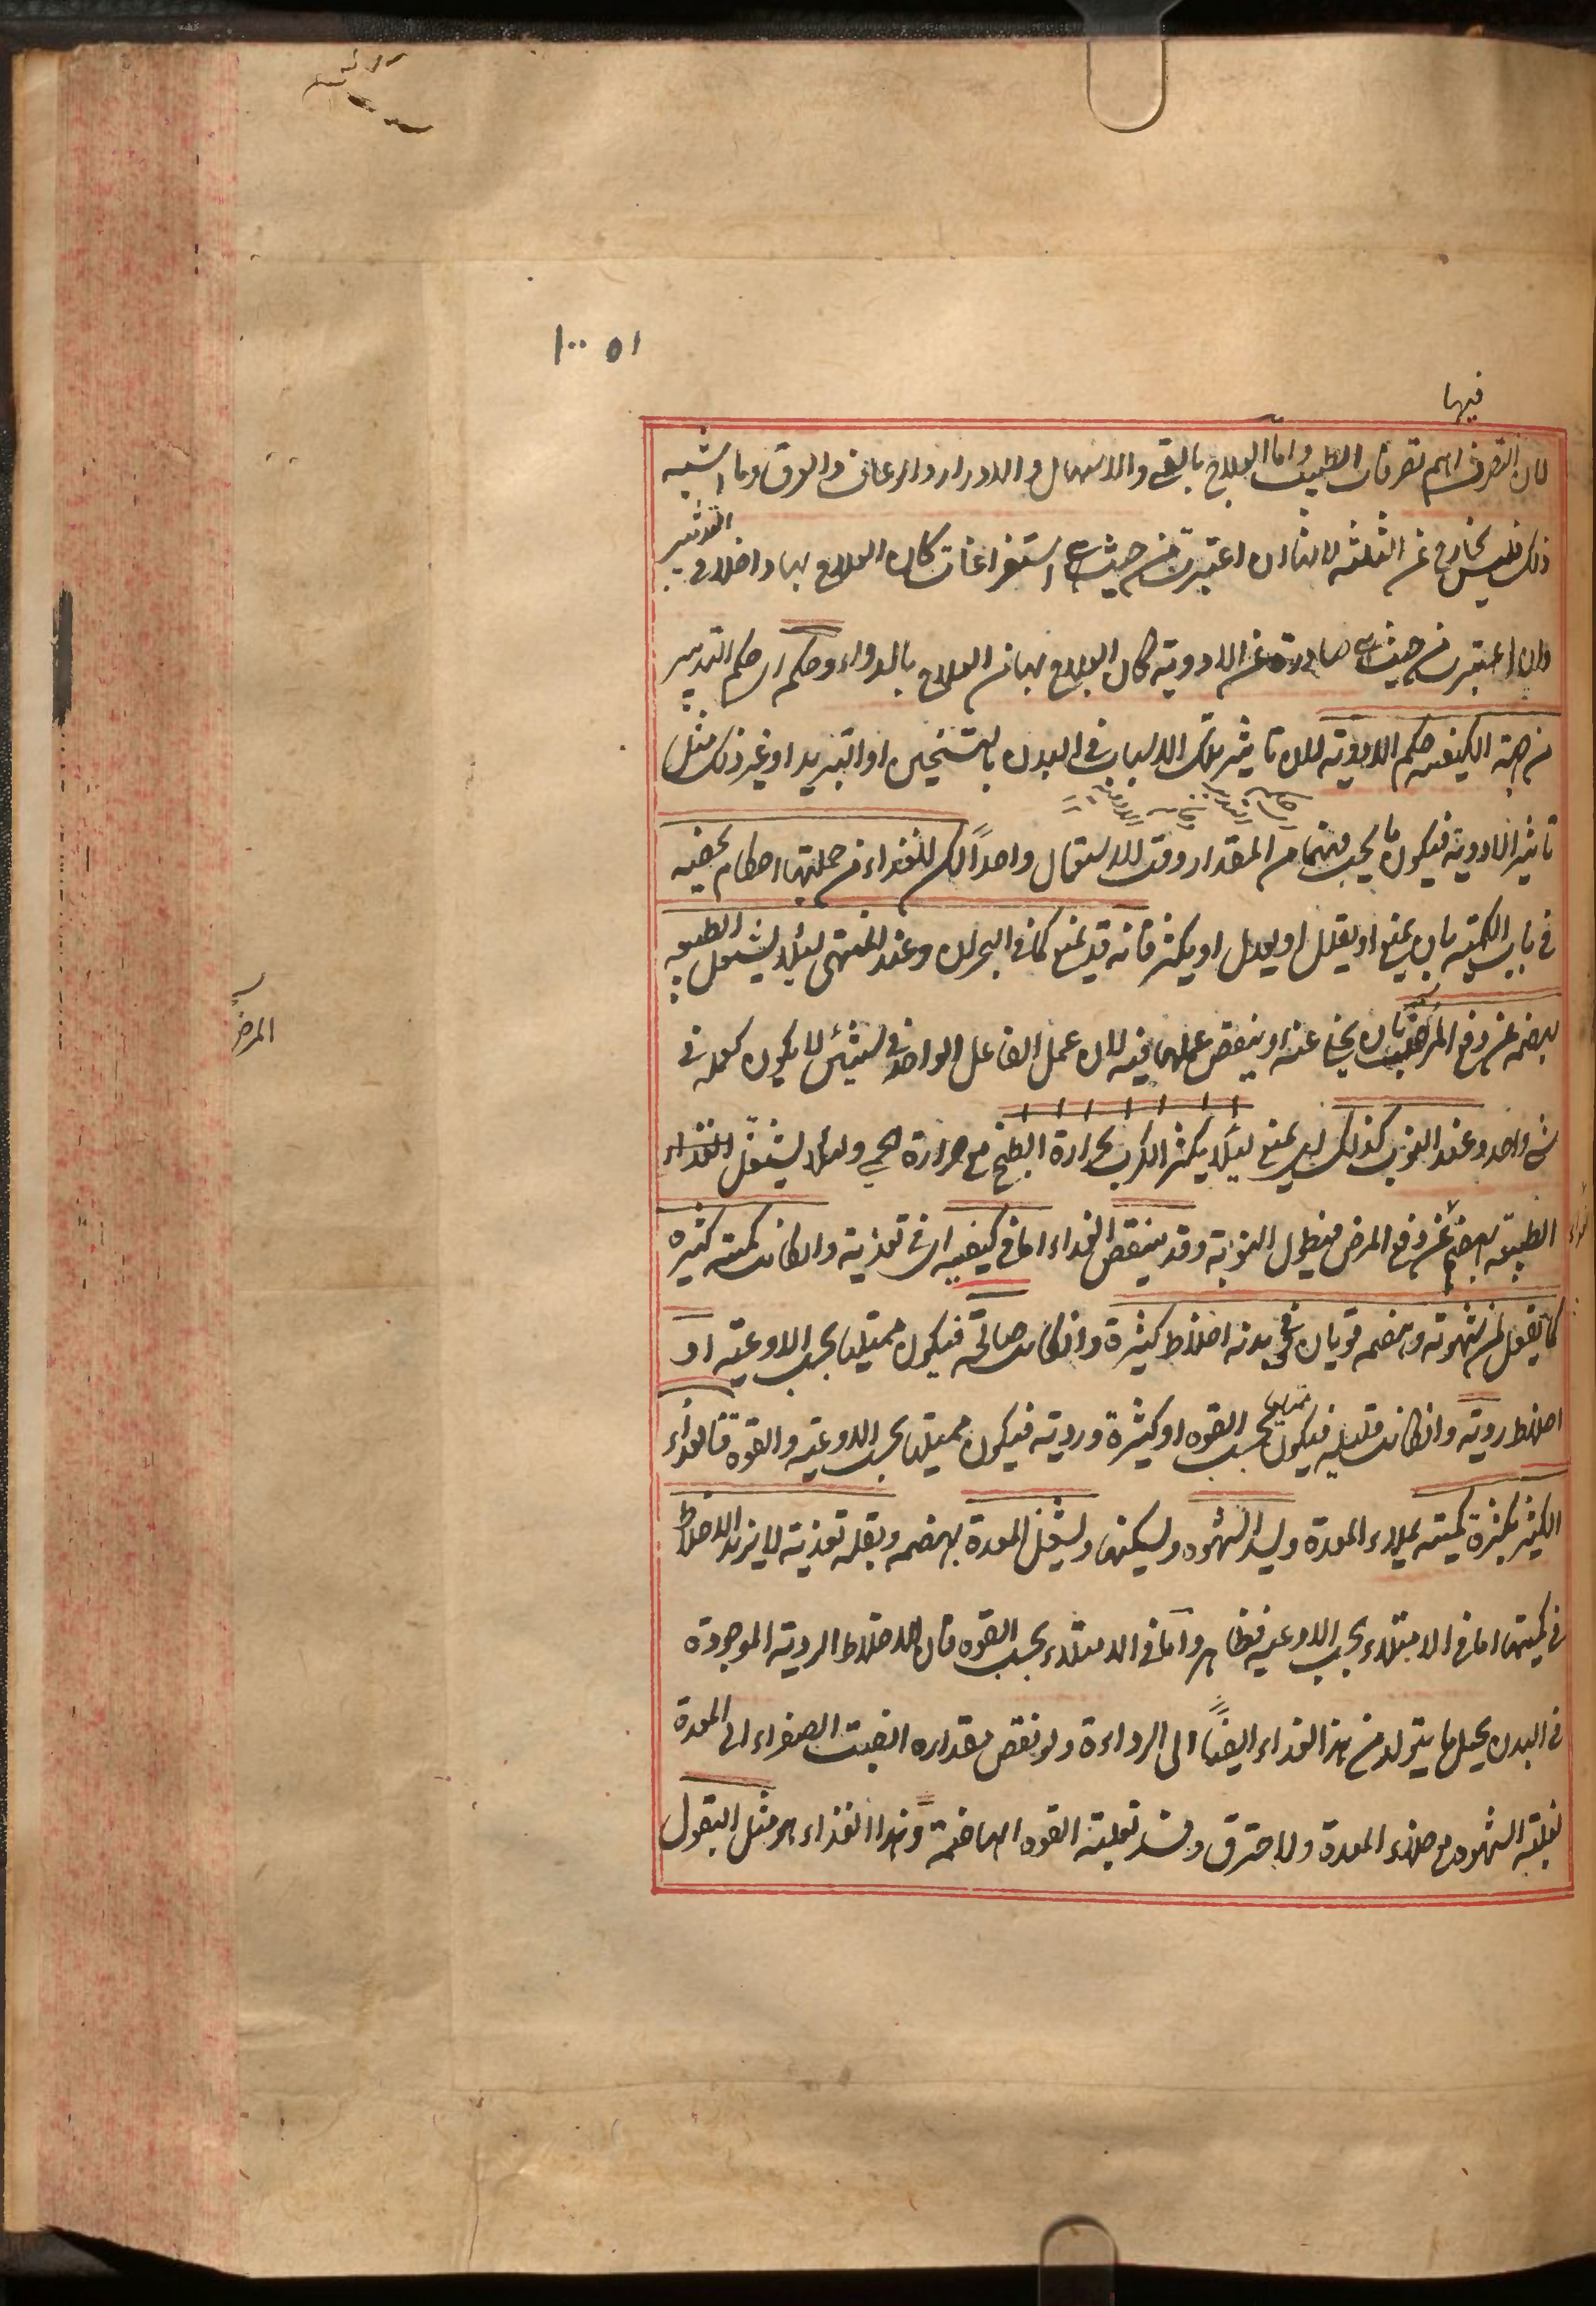 ١٠٠ ٥١
فيها
لان التصرف اهم تصرفات الطبيب واما العلاج بالقي والاسهال والادرار والرعاف والعرق وما اشبه
ذلك فليس بخارج عن الثلثة لانها ان اعتبرت من حيث هي استفراغات كان العلاج بها داخلا في التدبير
وان اعتبرت من حيث هي صادرة عن الادوية كان العلاج بها من العلاج بالدواء وحكمه اي حكم التدبير
من جهة الكيفية حكم الادوية لان تاثير تلك الاسباب في البدن بالتسخين او التبريد او غير ذلك مثل
تاثير الادوية فيكون ما يجب فيهما من المقدار ووقت الاستعمال واحداً لكن للغذاء من جملتها احكام تخصه
في باب الكمية بان يمنع او يقلل او يعدل او يكثر فانه قد يمنع كما في البحران وعند المنتهى لئلا يشتغل الطبيعة
بهضمه عن دفع المرض بان يخلي عنه او ينقص عملها فيه لان عمل الفاعل الواحد في شيئين لا يكون كعمله في
شي واحد وعند النوب كذلك اي يمنع لئلا يكثر الكرب بحرارة الطبخ مع حرارة الحمى ولئلا يشتغل الغذاء
الطبيعة بهضمه عن دفع المرض فيطول النوبة وقد ينقص الغذاء اما في كيفيته اي في تغذيته وان كانت كميته كثيرة
كما يفعل لمن شهوته وهضمه قويان وفي بدنه اخلاط كثيرة وان كانت صالحة فيكون ممتليا بحسب الاوعية او
اخلاط ردية وان كانت قليلة فيكون ممتليا بحسب القوة او كثيرة وردية فيكون ممتليا بحسب الاوعية والقوة فالغذاء
الكثير بكثرة كميته يملاء المعدة ويسد الشهوة ويسكنها ويشغل المعدة بهضمه وبقلة تغذيته لا يزيد الاخلاط
في كميتها اما في الامتلاء بحسب الاوعية فظاهر واما في الامتلاء بحسب القوة فان الاخلاط الردية الموجودة
في البدن يحيل ما يتولد من هذا الغذاء ايضاً الى الرداءة ولو نقص مقداره انصبت الصفراء الى المعدة
لغلبة الشهوة مع خلاء المعدة ولاحترق وفسد تعليته القوة الهاضمة وهذا الغذاء هو مثل البقول
المرض